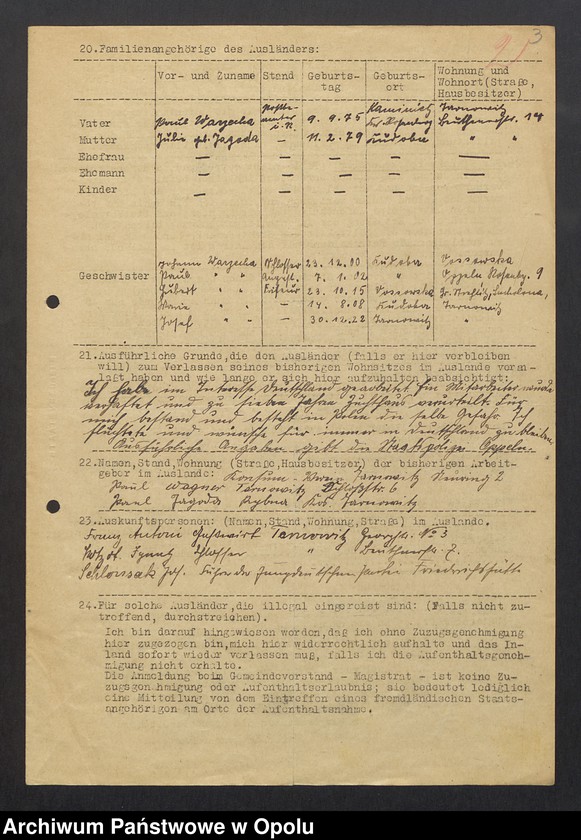 3
20.Familienangehörige des Ausländers:
Vor- und Zuname Stand Geburts-tag Geburts-ort Wohnung und Wohnort(Straße, Hausbesitzer)
Vater Paul Warzecha 9. 9. 75 Tarnowitz
Mutter Julie geb. Jagoda — 11. 2. 79 Kudoba " "
Ehefrau — — — — —
Ehemann — — — — —
Kinder — — — — —
Johann Warzecha Schlosser 23. 12. 00 Kudoba
Geschwister Paul " " 7. 1. 02 " Oppeln 9
Hubert " " Friseur 23. 10. 15
Marie " — 14. 8. 08 Kudoba Tarnowitz
Josef " — 30. 12. 22 Tarnowitz "
21.Ausführliche Gründe,die den Ausländer (falls er hier verbleiben
will) zum Verlassen seines bisherigen Wohnsitzes im Auslande veran-
laßt haben und wie lange er sich hier aufzuhalten beabsichtigt:
Ich habe im Interesse Deutschland gearbeitet. Ein Mitarbeiter wurde
verhaftet und zu sieben Jahren Zuchthaus verurteilt. Für
mich bestand und besteht in Polen die selbe Gefahr. Ich
flüchtete und wünsche für immer in Deutschland zu bleiben.
Ausführliche Angaben gibt die Staatspolizei Oppeln.
22.Namen,Stand,Wohnung (Straße,Hausbesitzer) der bisherigen Arbeit-
geber im Auslande: Konsum- Tarnowitz 2
Paul Wagner Tarnowitz Schloßstr. 6
Paul Jagoda Rybna Krs. Tarnowitz
23.Auskunftspersonen: (Namen,Stand,Wohnung,Straße) im Auslande.
Franz Antoni Gastwirt Tarnowitz Georgstr. No 3
Ignatz Schlosser "
Schlonsak Jos. Führer der Jungdeutschen Partei Friedrichshütte
24.Für solche Ausländer,die illegal eingereist sind: (Falls nicht zu-
treffend, durchstreichen).
Ich bin darauf hingewiesen worden,daß ich ohne Zuzugsgenehmigung
hier zugezogen bin,mich hier widerrechtlich aufhalte und das In-
land sofort wieder verlassen muß, falls ich die Aufenthaltsgeneh-
migung nicht erhalte.
Die Anmeldung beim Gemeindevorstand - Magistrat - ist keine Zu-
zugsgenehmigung oder Aufenthaltserlaubnis; sie bedeutet lediglich
eine Mitteilung von dem Eintreffen eines fremdländischen Staats-
angehörigen am Orte der Aufenthaltsnahme.
Archiwum Państwowe w Opolu